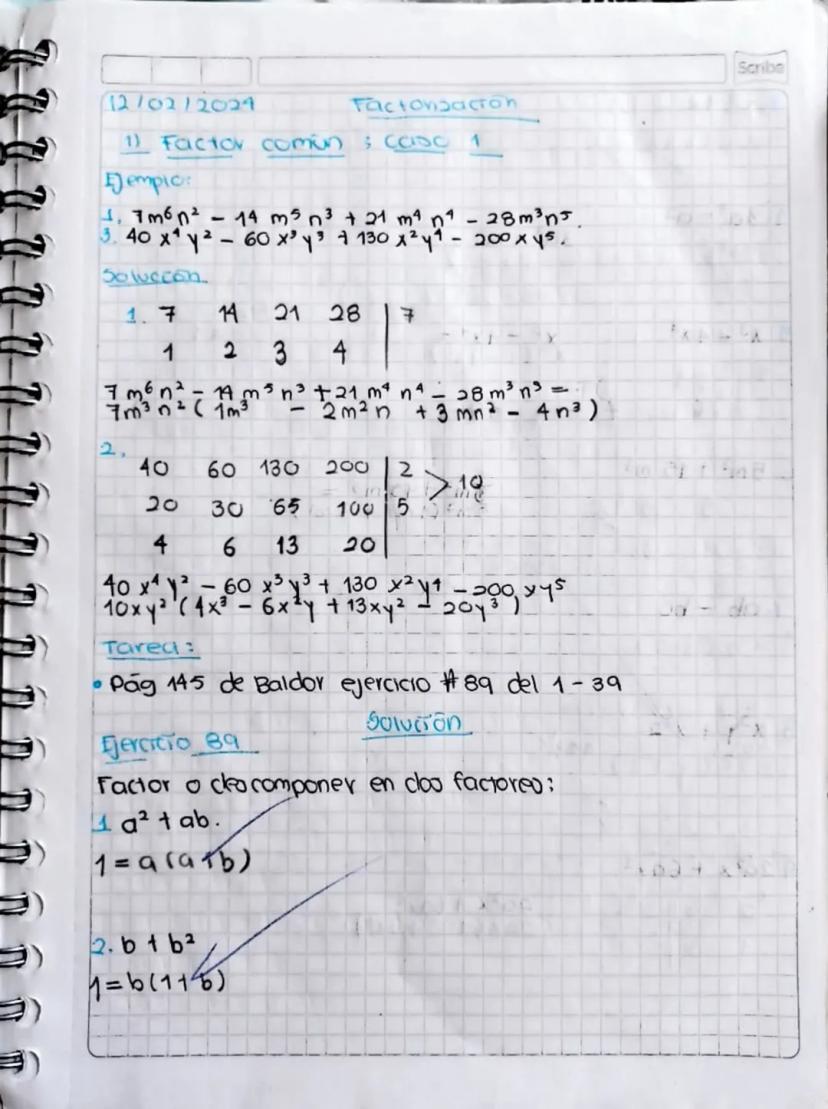 Scribe
12/02/2024 Factorización
1) Factor común ; caso 1
Ejemplo:
1. 7m⁶n² - 14 m⁵n³ + 21 m⁴n⁴ - 28m³n⁵.
3. 40 x⁴y² - 60 x³y³ + 130 x²y⁴ - 200 x y⁵.
Solución
1. 7 14 21 28 | 7
1 2 3 4
7 m⁶n² - 14 m⁵n³ + 21 m⁴n⁴ - 28 m³n⁵ =
7m³n² (1m³ - 2m²n + 3mn² - 4n³)
2.
40 60 130 200 | 2 > 10
20 30 65 100 | 5
4 6 13 20
40 x⁴y² - 60 x³y³ + 130 x²y⁴ - 200 xy⁵
10xy² (4x³ - 6x²y + 13xy² - 20y³)
Tarea:
• Pág 145 de Baldor ejercicio #89 del 1 - 39
Solución
Ejercicio 89
Factor o descomponer en dos factores:
1 a² + ab.
1 = a (a+b)
2. b + b²
1 = b(1+b)